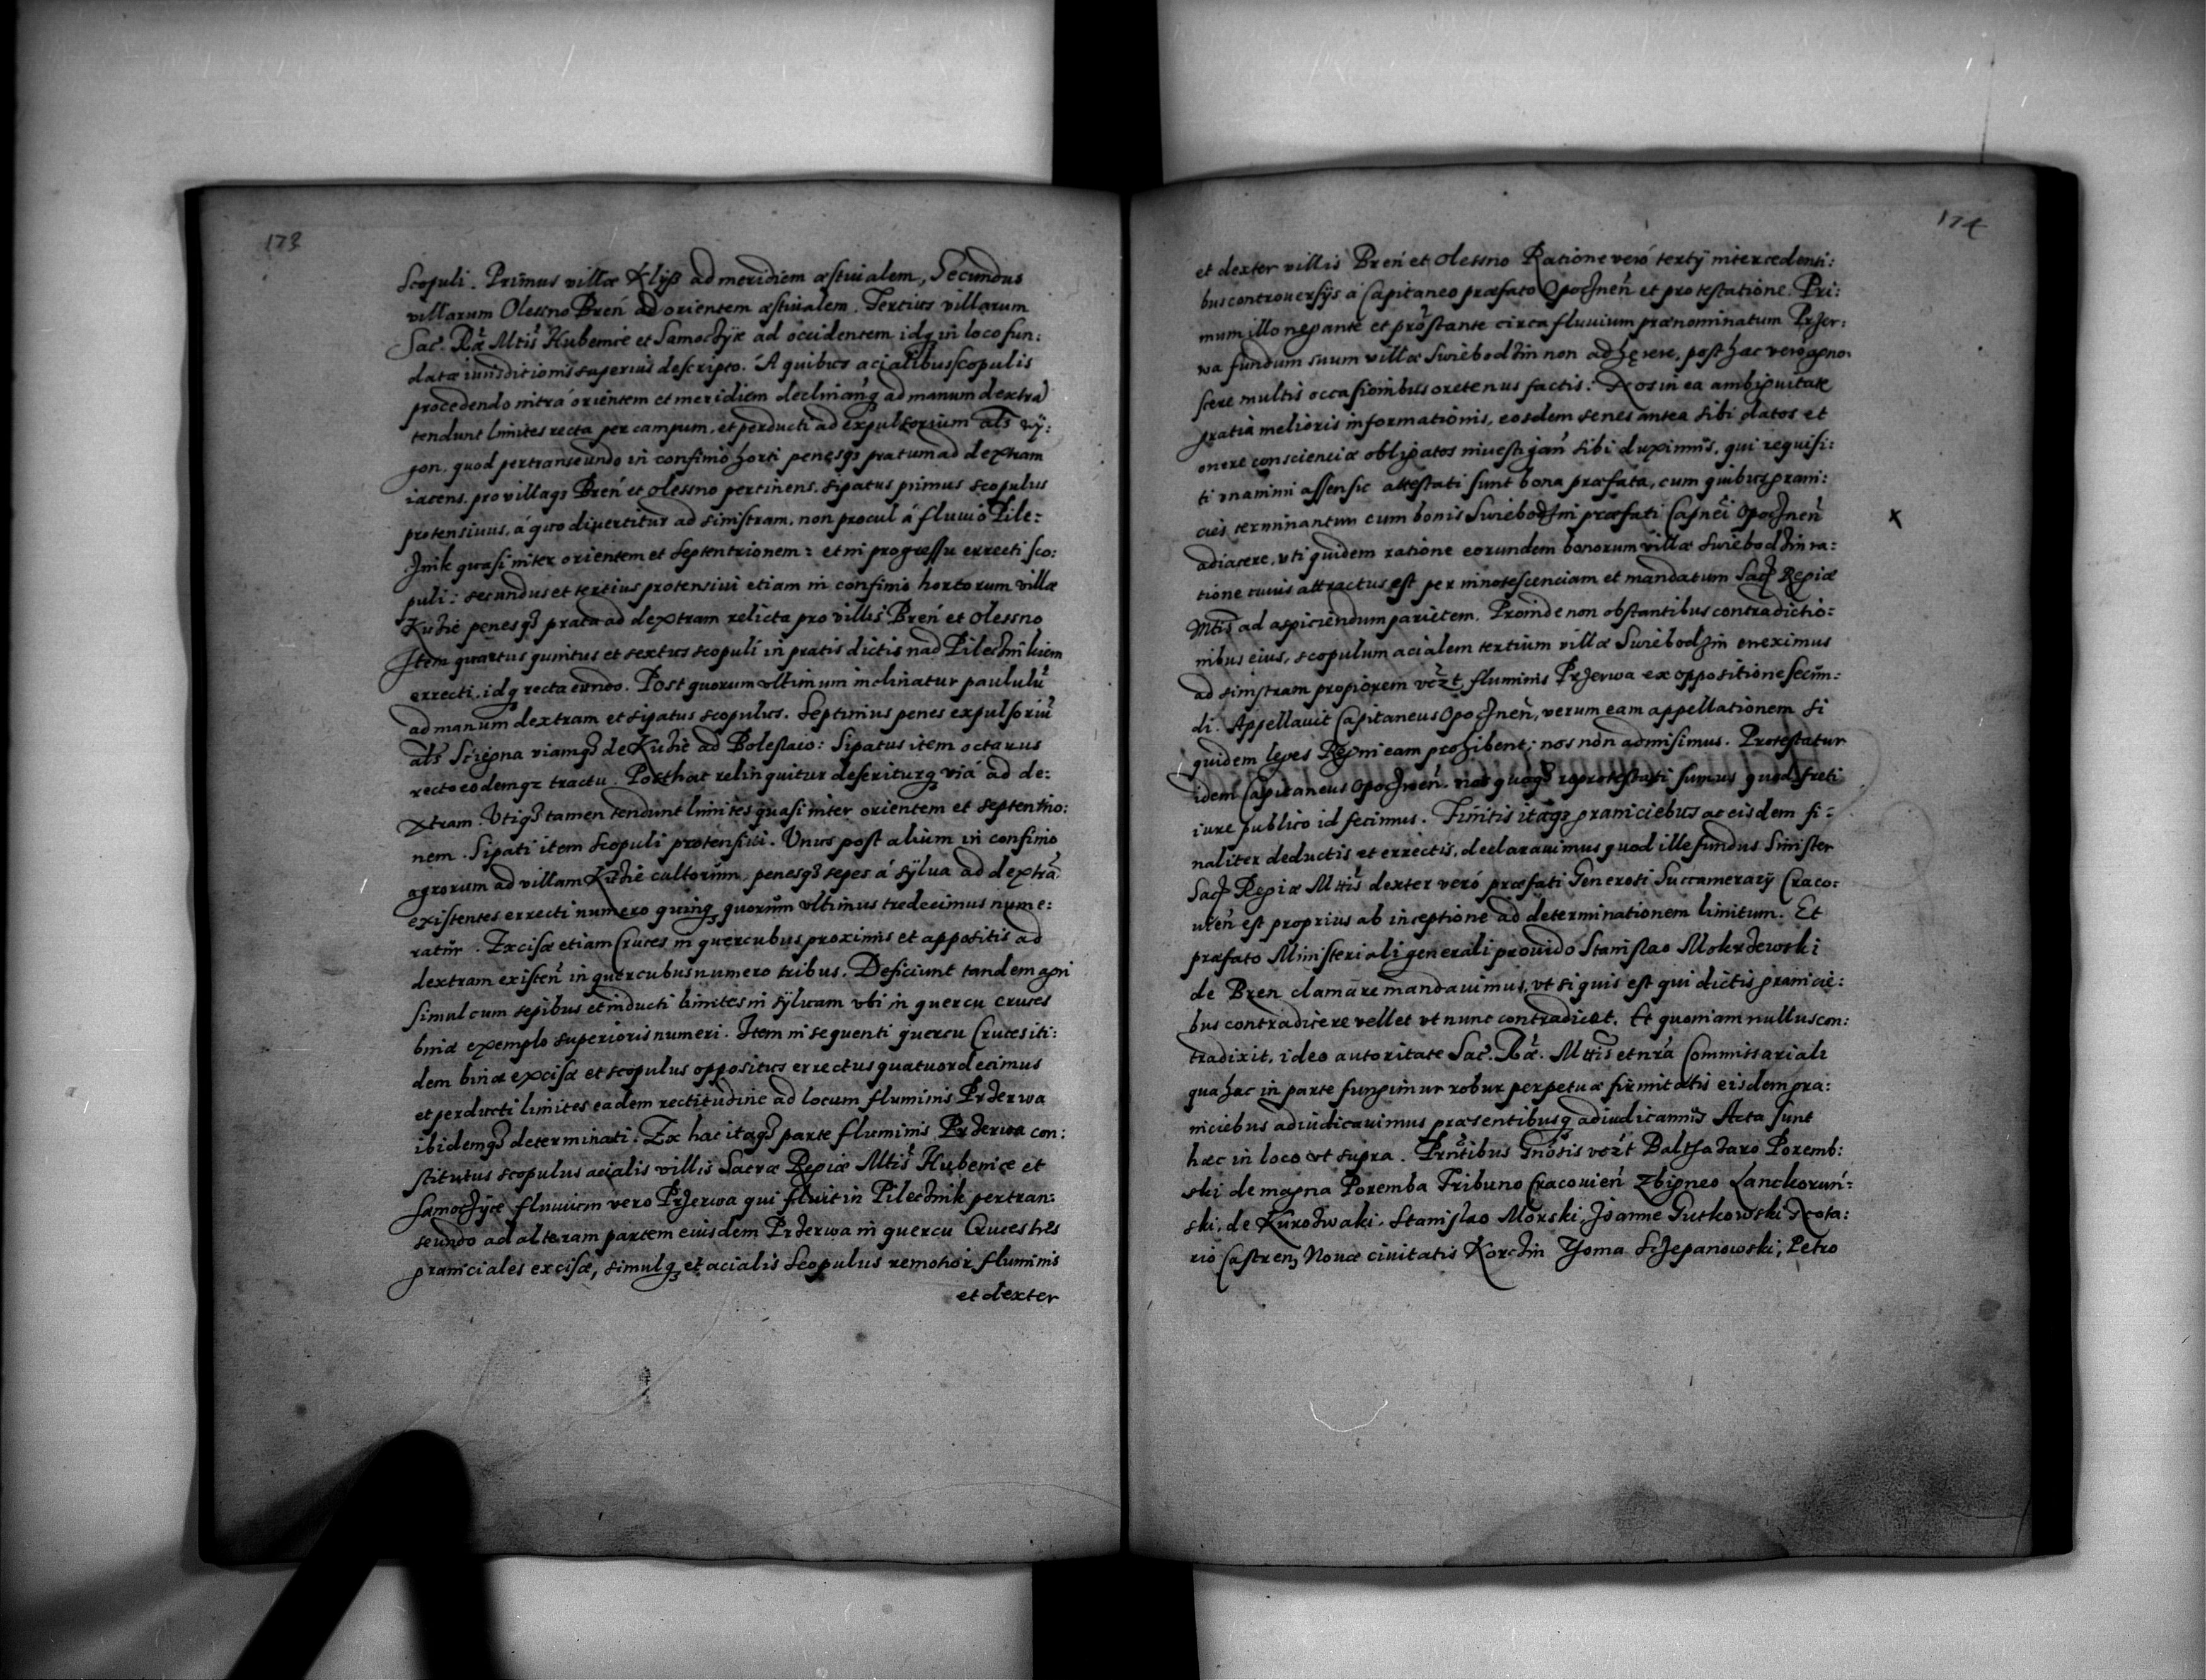 173
Scopuli. Primus villæ Klyß ad meridiem æstiualem, Secundus
villarum Olessno Breń ad orientem æstiualem. Tertius villarum
Sac. Ræ Mtis Hubenice et Samoczÿæ ad occidentem idq in loco fun:
datæ iurisditionis superius descripto. A quibus acialibus scopulis
procedendo intra orientem et meridiem declinanq ad manum dextra
tendunt limites recta per campum, et perducti ad expultorium als wÿ:
gon, quod pertranseundo in confinio horti penesq3 pratum ad dextram
iacens, pro villaq3 Breń et Olessno pertinens, sipatus primus scopulus
protensiuus, á quo diuertitur ad sinistram, non procul á fluuio Pile:
znik quasi inter orientem et septentrionem: et in progressu errecti sco:
puli: secundus et tertius protensiui etiam in confinio hortorum villæ
Kuzie penesq3 prata ad dextram relicta pro villis Breń et Olessno
Item quartus quintus et sextus scopuli in pratis dictis nad Pilecznikiem
errecti, idq recta eundo. Post quorum vltimum inclinatur paululu
ad manum dextram et sipatus scopulus. Septimus penes expulsoriu
als Sciegna viamq3 de Kuzie ad Bolestaio: Sipatus item octauus
recto eodemq3 tractu. Posthac relinquitur deseriturq via ad de:
xtram. Vtiq3 tamen tendunt limites quasi inter orientem et septentrio:
nem. Sipati item scopuli protensiui. Vnus post alium in confinio
agrorum ad villam Kuzie cultorum, penesq3 sepes á sÿlua ad dextra
existentes errecti numero quinq3 quorum vltimus tredecimus nume:
ratur. Excisæ etiam Cruces in quercubus proximis et appositis ad
dextram existeń in quercubus numero tribus. Deficiunt tandem agri
simul cum sepibus et inducti limites in sÿluam vbi in quercu cruces
binæ exemplo superioris numeri. Item in sequenti quercu Cruces iti:
dem binæ excisæ et scopulus oppositus errectus quatuordecimus
et perducti limites eadem rectitudine ad locum fluminis Przerwa
ibidemq3 determinati. Ex hac itaq3 parte fluminis Przerwa con:
stitutus scopulus acialis villis Sacræ Regiæ Mtis Hubenice et
Samoczÿce fluuium vero Przerwa qui fluit in Pilecznik pertran:
seundo ad alteram partem eiusdem Przerwa in quercu Cruces tres
graniciales excisæ, simulq3 et acialis scopulus remotior fluminis
et dexter
174
et dexter villis Breń et Olessno Ratione veró tertÿ intercedenti:
bus controuersÿs a Capitaneo præfato Opocznen et protestatione. Pri:
mum illo negante et prostante circa fluuium prænominatum Przer:
wa fundum suum villæ Swiebodzin non adhęrere, post hac vero agno:
scere multis occasionibus oretenus factis: Nos in ea ambiguitate
gratia melioris informationis, eosdem senes antea sibi datos et
onere conscienciæ obligatos inuestigań sibi duximus, qui requisi:
ti vnanimi assensic attestati sunt bona præfata, cum quibus grani:
cies terminantur cum bonis Swiebodzin præfati Capnei Opocznen x
adiacere, vti quidem ratione eorundem bonorum villæ Swiebodzin ra:
tione cuius attractus est per innotescenciam et mandatum Sacr Regiæ
Mtis ad aspiciendum parietem. Proinde non obstantibus contradictio:
nibus eius, scopulum acialem tertium villæ Swiebodzin ereximus
ad sinistram propiorem vczt fluminis Przerwa ex oppositione secun:
di. Appellauit Capitaneus Opocznen, verum eam appellationem si
quidem leges Regni eam prohibent; nos non admisimus. Protestatur
idem Capitaneus Opocznen. nos quoq3 reprotestati sumus quod freti
iure publico id fecimus. Finitis itaq3 graniciebus ac eisdem fi:
naliter deductis et errectis, declarauimus quod ille fundus Sinister
Sacr Regiæ Mttis dexter veró præfati Generosi Succamerarÿ Craco:
uień est proprius ab inceptione ad determinationem limitum. Et
præfato Ministeriali generali prouido Stanislao Mokrzewski
de Bren clamare mandauimus, vt si quis est qui dictis granicie:
bus contradicere vellet vt nunc contradicat. Et quoniam nullus con:
tradixit, ideo autoritate Sac. Ræ. Mttis et nra Commissariali
qua hac in parte fungimur robur perpetuæ firmitatis eisdem gra:
niciebus adiudicauimus præsentibusq adiudicamus Acta sunt
hæc in loco vt supra. Prntibus Gnosis vczt Balthazaro Poremb:
ski de magna Poremba Tribuno Cracouień Zbigneo Lanckoruń:
ski, de Kurozwaki, Stanislao Morski, Joanne Gutkowski Nota:
rio Castren3 Nouæ ciuitatis Korczin Thoma Sczepanowski, Petro